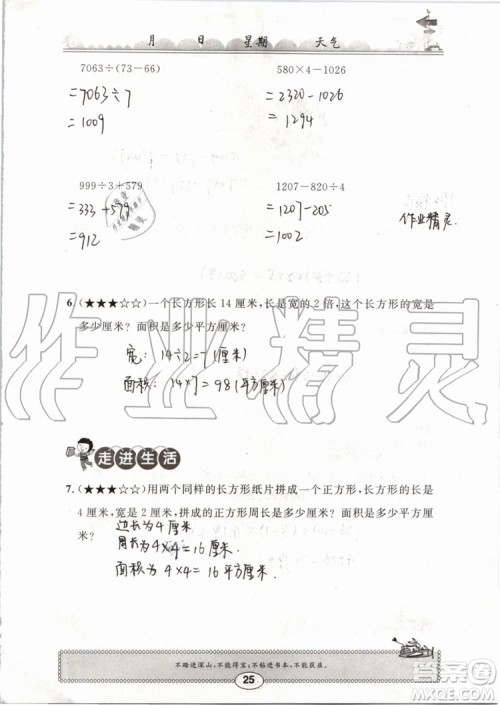 月 日 星期 天气
7063÷(73－66)
＝7063÷7
＝1009
580×4－1026
＝2320－1026
＝1294
999÷3＋579
＝333＋579
＝912
1207－820÷4
＝1207－205
＝1002
作业精灵
6. (★★★☆☆)一个长方形长 14 厘米，长是宽的 2 倍，这个长方形的宽是
多少厘米？面积是多少平方厘米？
宽：14÷2＝7(厘米)
面积：14×7＝98(平方厘米)
作业精灵
走进生活
7. (★★★☆☆)用两个同样的长方形纸片拼成一个正方形，长方形的长是
4 厘米，宽是 2 厘米，拼成的正方形周长是多少厘米？面积是多少平方厘
米？
边长为4厘米
周长为4×4＝16厘米
面积为4×4＝16平方厘米.
不踏进深山，不能得宝；不钻进书本，不能获益。
25